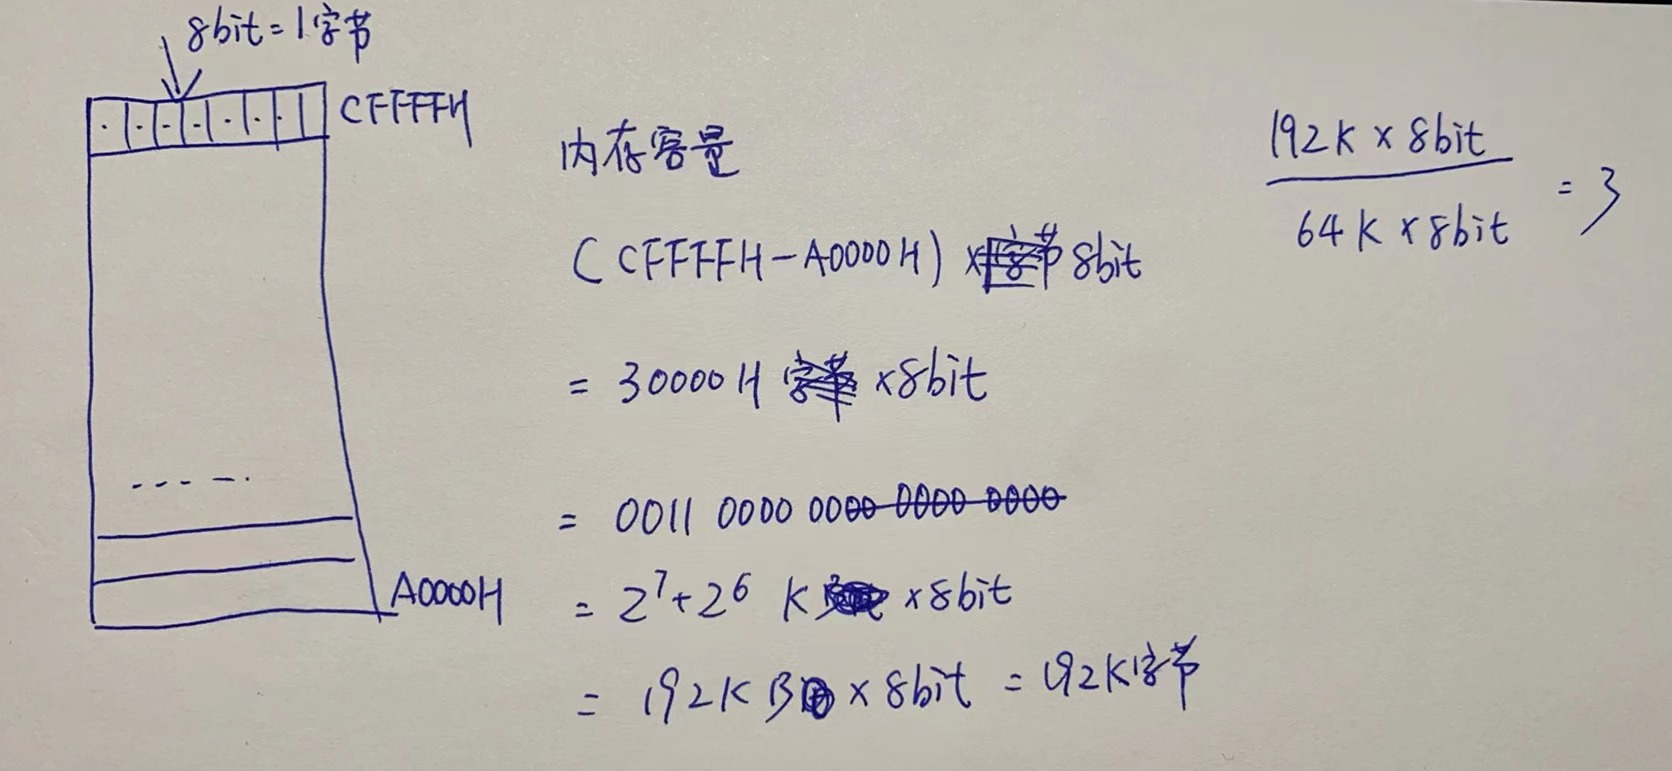 8bit=1字节
CFFFFH
内存容量
(CFFFFH-A0000H)×8bit
=30000H ×8bit
=0011 0000 0000 0000 0000
A0000H
=2⁷+2⁶ K ×8bit
=192KB ×8bit =192K字节
192K×8bit
64K×8bit
=3